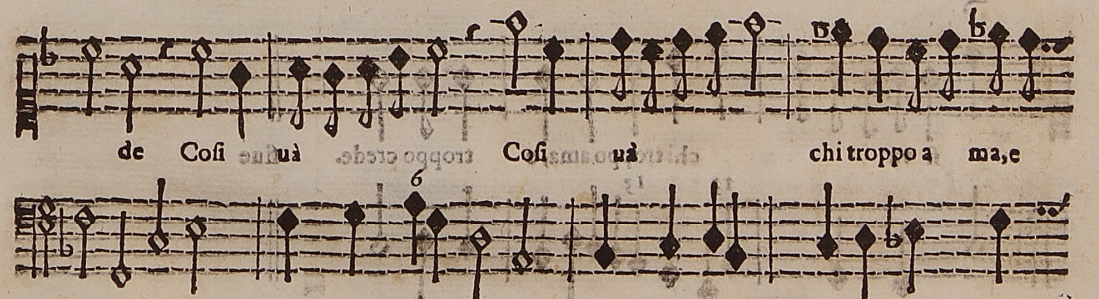 de Cosi uà Cosi uà chi troppo a ma,e
6